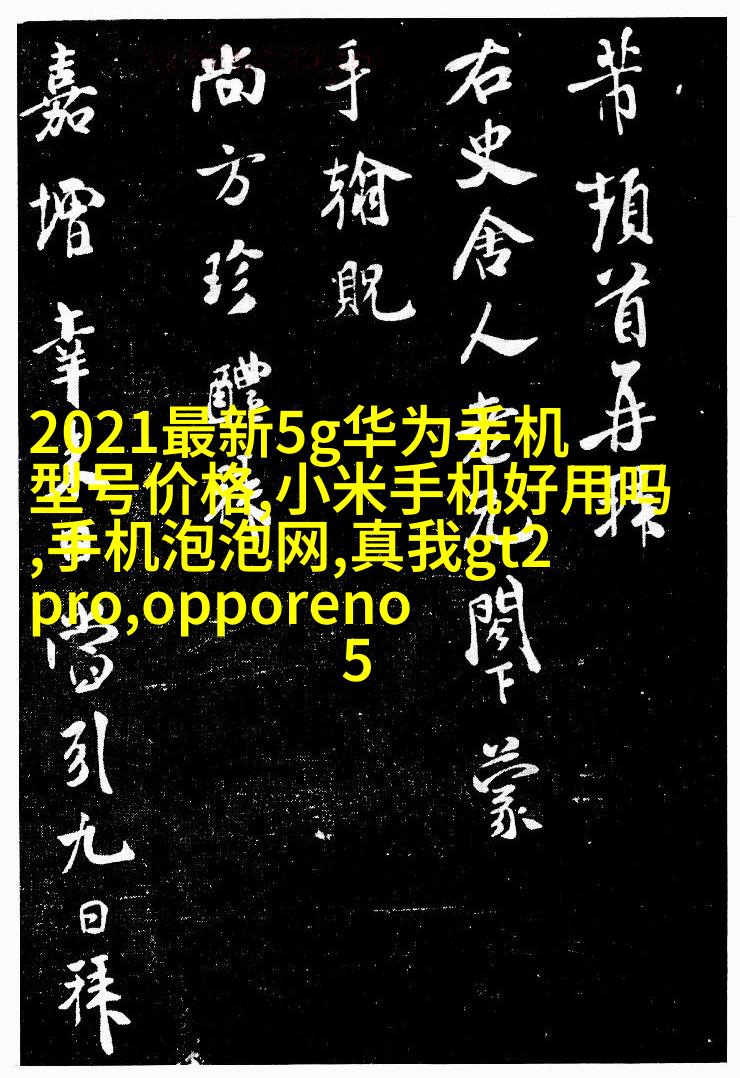 芾頓首再拜
右史舍人老兄閣下蒙
手翰貺
尚方珍醴珠
嘉增幸當引九日拜
2021最新5g华为手机
型号价格,小米手机好用吗
,手机泡泡网,真我gt2
pro,opporeno
5